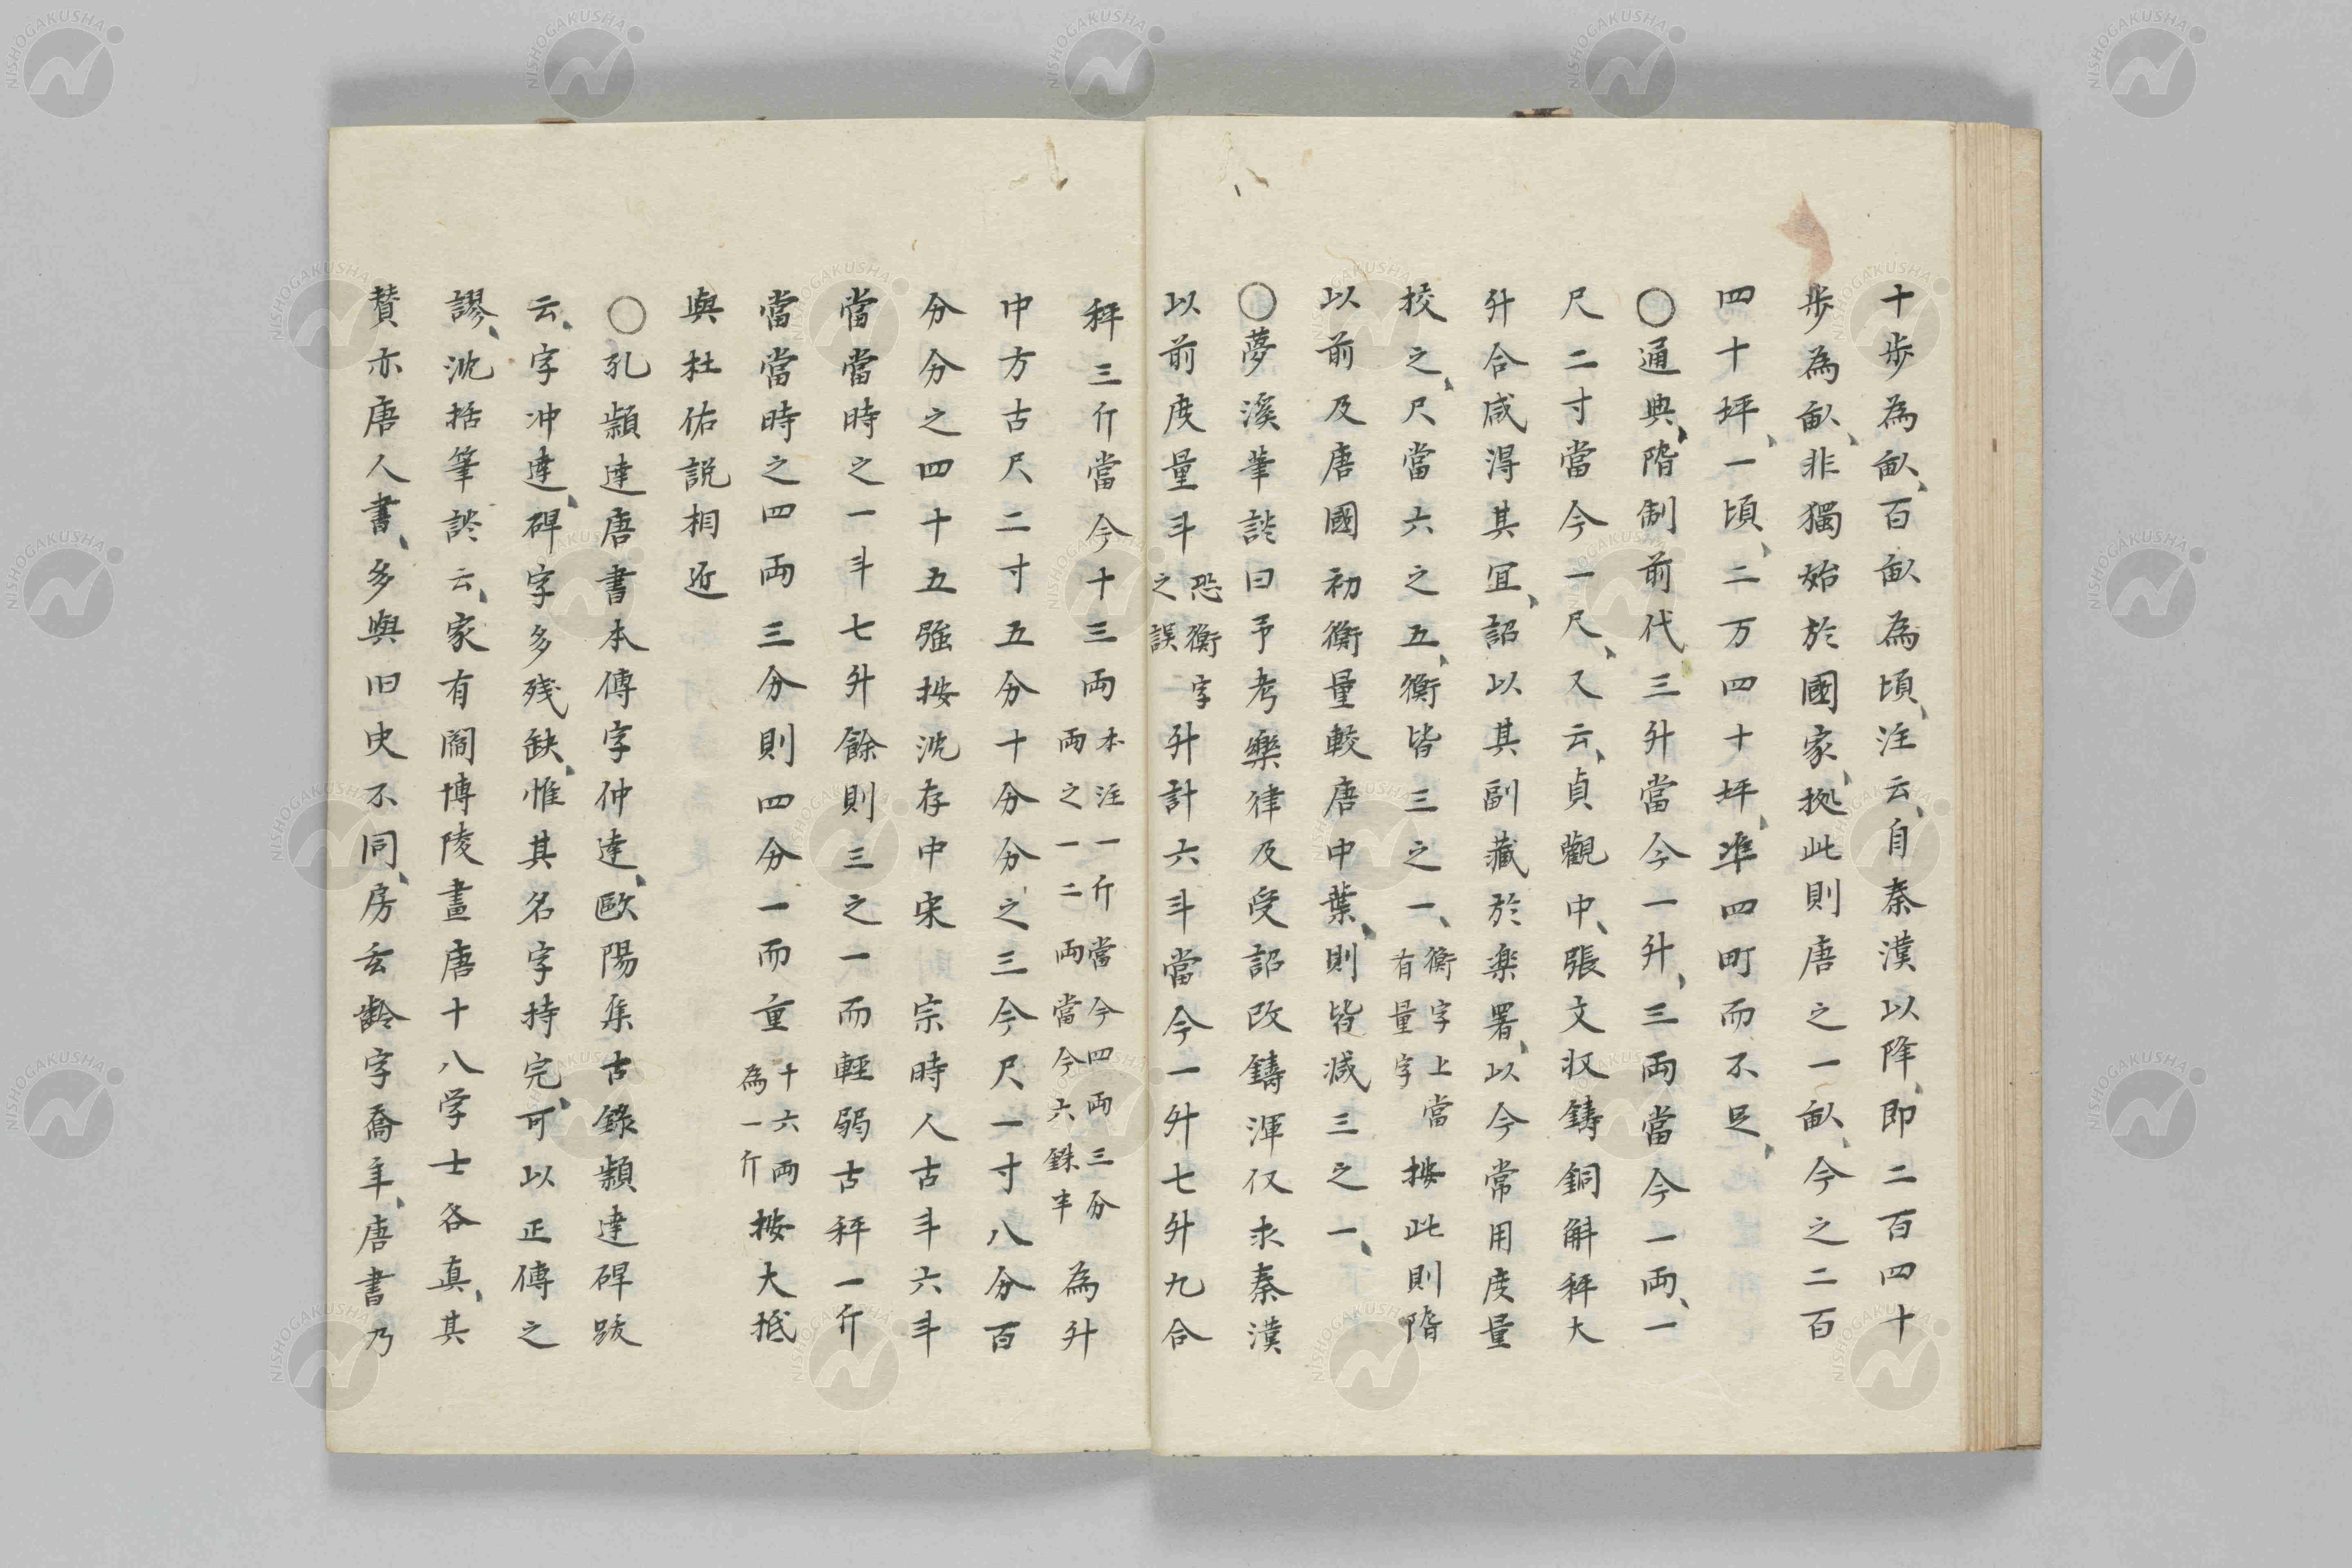 十歩為畝、百畝為頃、注云、自秦漢以降、即二百四十
歩為畝、非獨始於國家、拠此則唐之一畝、今之二百
四十坪、一頃、二万四十坪、準四町而不足、
〇通典、隋制前代三升當今一升、三両當今一両、一
尺二寸當今一尺、又云、貞觀中、張文収鋳銅斛秤大
升合咸淂其冝、詔以其副藏於楽署、以今常用度量
挍之、尺當六之五、衡皆三之一、衡字上當有量字 按此則隋
以前及唐國初衡量較唐中葉、則皆減三之一、
〇夢溪筆談曰予考樂律及受詔改鋳渾仪求秦漢
以前度量斗恐衡字之誤升計六斗當今一升七升九合
秤三斤當今十三両本注一斤當今四両三分両之一二両當今六銖半為升
中方古尺二寸五分十分分之三今尺一寸八分百
分分之四十五強按沈存中宋宗時人古斗六斗
當當時之一斗七升餘則三之一而輕弱古秤一斤
當當時之四両三分則四分一而重十六両為一斤按大抵
與杜佑説相近
〇孔穎達唐書本傳字仲達、歐陽集古錄穎達碑跋
云、字冲達、碑字多残缺、惟其名字持完、可以正傳之
謬、沈括筆談云、家有閻博陵畫唐十八学士各真、其
賛亦唐人書、多與旧史不同、房玄齡字喬年、唐書乃
NISHOGAKUSHA